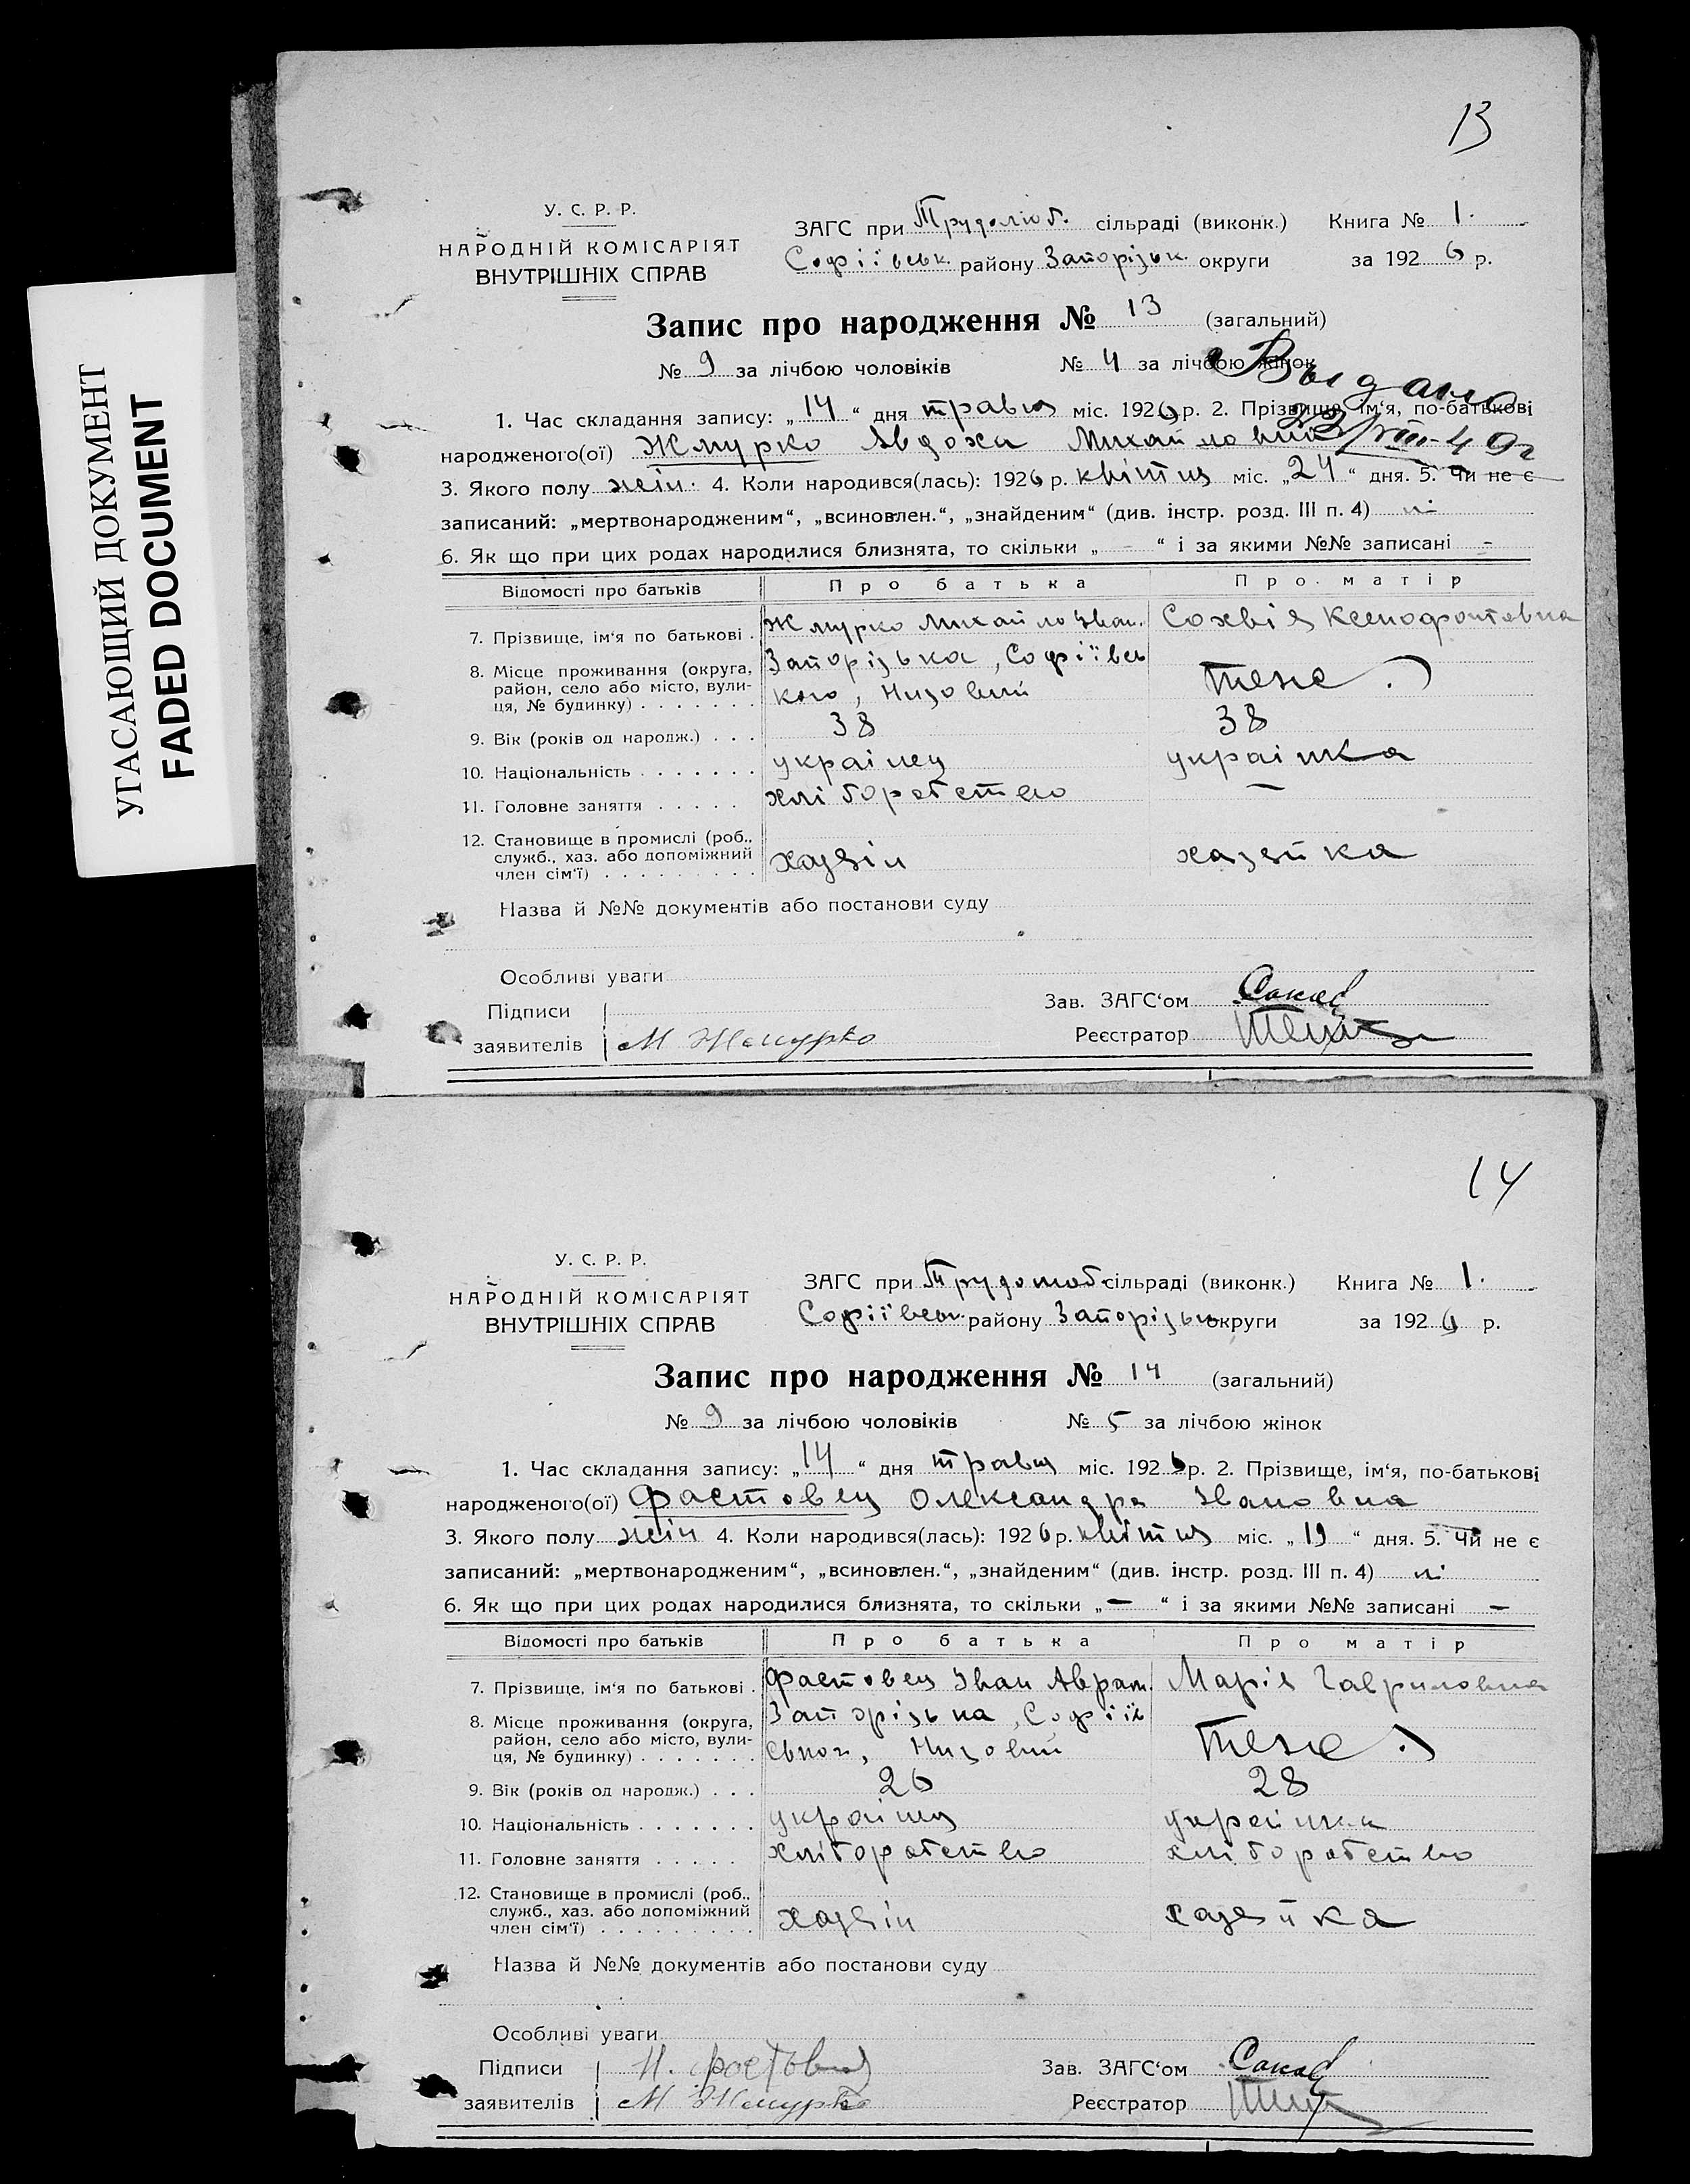 УГАСАЮЩИЙ ДОКУМЕНТ
FADED DOCUMENT
13
У. С. Р. Р.
НАРОДНІЙ КОМІСАРІЯТ
ВНУТРІШНІХ СПРАВ
ЗАГС при Трудолюб. сільраді (виконк.) Книга № 1.
Софіївськ. району Запорізьк. округи за 1926 р.
Запис про народження № 13 (загальний)
№ 9 за лічбою чоловіків № 4 за лічбою жінок
Выдано
1. Час складання запису: „14“ дня травня міс. 1926 р. 2. Прізвище, ім‘я, по-батькові
22/VIII-49г
народженого(ої) Жмурко Явдоха Михайловна
3. Якого полу жін. 4. Коли народився(лась): 1926 р. квітня міс. „24“ дня. 5. Чи не є
записаний: „мертвонародженим“, „всиновлен.“, „знайденим“ (див. інстр. розд. III п. 4) ні
6. Як що при цих родах народилися близнята, то скільки „-“ і за якими №№ записані -
Відомості про батьків Про батька Про матір
7. Прізвище, ім‘я по батькові . Жмурко Михайло Іван. Сохвія Ксенофонтовна
8. Місце проживання (округа, район, село або місто, вули-ця, № будинку) . . . . . . . Запорізька, Софіївсь
кого, Низовий Теже .)
9. Вік (років од народж.) . . . 38 38
10. Національність . . . . . . . українец українка
11. Головне заняття . . . . . хліборобство —
12. Становище в промислі (роб., служб., хаз. або допоміжний член сім‘ї) . . . . . . . . . хазяін хазяйка
Назва й №№ документів або постанови суду
Особливі уваги
Підписи
Зав. ЗАГС‘ом
заявителів М Жмурко
Реєстратор
14
У. С. Р. Р.
НАРОДНІЙ КОМІСАРІЯТ
ВНУТРІШНІХ СПРАВ
ЗАГС при Трудолюб. сільраді (виконк.) Книга № 1.
Софіївськ. району Запорізьк. округи за 1926 р.
Запис про народження № 14 (загальний)
№ 9 за лічбою чоловіків № 5 за лічбою жінок
1. Час складання запису: „14“ дня травня міс. 1926 р. 2. Прізвище, ім‘я, по-батькові
народженого(ої) Фастовец Олександра Івановна
3. Якого полу жін 4. Коли народився(лась): 1926 р. квітня міс. „19“ дня. 5. Чи не є
записаний: „мертвонародженим“, „всиновлен.“, „знайденим“ (див. інстр. розд. III п. 4) ні
6. Як що при цих родах народилися близнята, то скільки „—“ і за якими №№ записані —
Відомості про батьків Про батька Про матір
7. Прізвище, ім‘я по батькові . Фастовец Іван Аврам. Марія Гавриловна
8. Місце проживання (округа, район, село або місто, вули-ця, № будинку) . . . . . . . Запорізька, Софіїв
ськог, Низовий Теже .)
9. Вік (років од народж.) . . . 26 28
10. Національність . . . . . . . українец українка
11. Головне заняття . . . . . хліборобство хліборобство
12. Становище в промислі (роб., служб., хаз. або допоміжний член сім‘ї) . . . . . . . . . хазяін хазяйка
Назва й №№ документів або постанови суду
Особливі уваги
Підписи И. Фастовец
Зав. ЗАГС‘ом
заявителів М Жмурко
Реєстратор